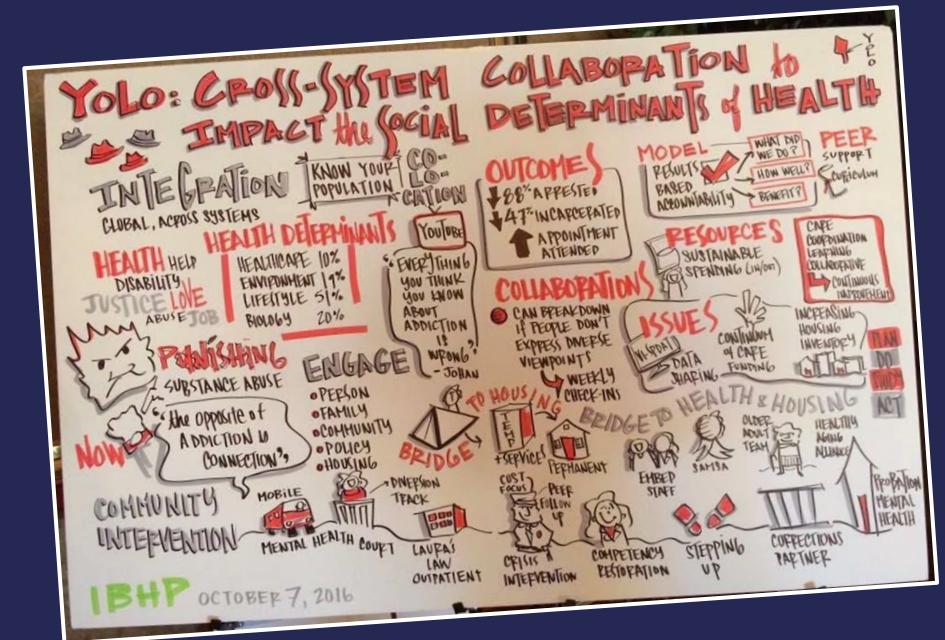 YOLO: CROSS-SYSTEM COLLABORATION to
IMPACT the SOCIAL DETERMINANTS of HEALTH
YOLO
INTEGRATION
GLOBAL, ACROSS SYSTEMS
KNOW YOUR
POPULATION
CO-
LO-
CATION
HEALTH HELP
DISABILITY
JUSTICE LOVE
ABUSE JOB
HEALTH DETERMINANTS
HEALTHCARE 10%
ENVIRONMENT 19%
LIFESTYLE 51%
BIOLOGY 20%
YOUTUBE
"EVERYTHING
YOU THINK
YOU KNOW
ABOUT
ADDICTION
IS
WRONG"
- JOHAN
OUTCOMES
88% ARRESTED
47% INCARCERATED
APPOINTMENT
ATTENDED
MODEL
RESULTS
BASED
ACCOUNTABILITY
WHAT DID
WE DO?
HOW WELL?
BENEFIT?
PEER
SUPPORT
CURICULUM
RESOURCES
SUSTAINABLE
SPENDING
CARE
COORDINATION
LEARNING
COLLABORATIVE
CONTINUOUS
IMPROVEMENT
COLLABORATIONS
CAN BREAKDOWN
IF PEOPLE DON'T
EXPRESS DIVERSE
VIEWPOINTS
WEEKLY
CHECK-INS
ISSUES
DATA
SHARING
CONTINUUM
OF CARE
FUNDING
INCREASING
HOUSING
INVENTORY
PLAN
DO
STUDY
ACT
PUNISHING
SUBSTANCE ABUSE
NOW
"the OPPOSITE OF
ADDICTION is
CONNECTION"
ENGAGE
PERSON
FAMILY
COMMUNITY
POLICY
HOUSING
BRIDGE
TO HOUSING
TREAT
+ SERVICE
PERMANENT
BRIDGE TO HEALTH & HOUSING
EMBED
STAFF
SAMSA
OLDER
ADULT
TEAM
HEALTHY
AGING
ALLIANCE
COMMUNITY
INTERVENTION
MOBILE
DIVERSION
TRACK
MENTAL HEALTH COURT
LAURA'S
LAW
OUTPATIENT
CUST
FOCUS
PEER
FOLLOW
UP
CRISIS
INTERVENTION
COMPETENCY
RESTORATION
STEPPING
UP
CORRECTIONS
PARTNER
PROBATION
MENTAL
HEALTH
IBHP OCTOBER 7, 2016